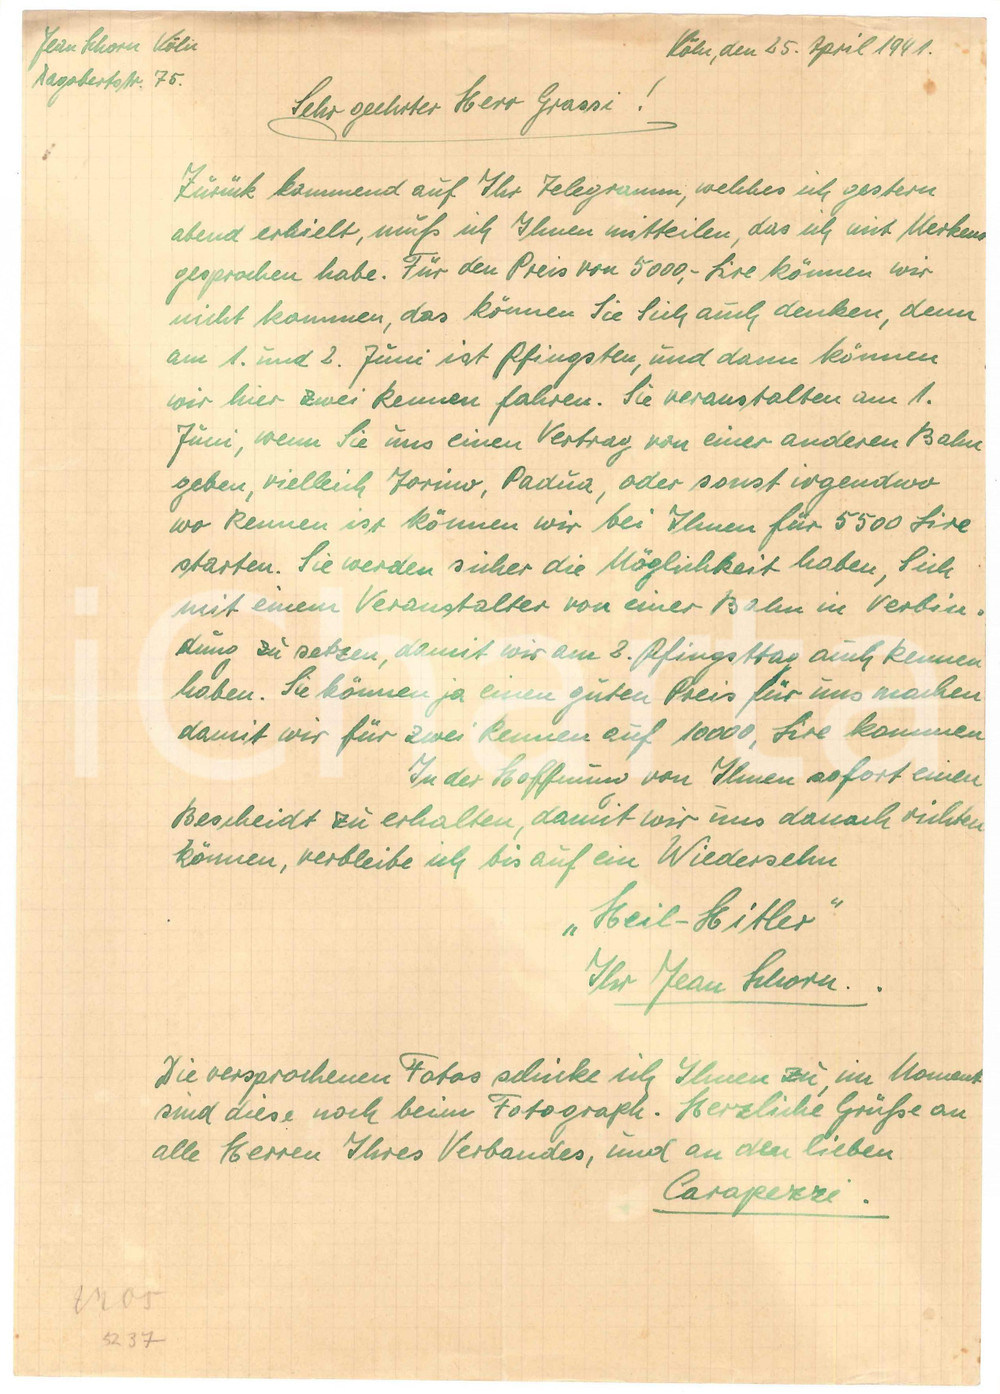 Jean Schorn Köln
Dagobertstr. 75.
Köln, den 25. April 1941.
Sehr geehrter Herr Grassi!
Zurük kommend auf Ihr Telegramm, welches ich gestern
abend erhielt, muß ich Ihnen mitteilen, das ich mit Merkens
gesprochen habe. Für den Preis von 5000,- Lire können wir
nicht kommen, das können Sie Sich auch denken, denn
am 1. und 2. Juni ist Pfingsten, und dann können
wir hier zwei Rennen fahren. Sie veranstalten am 1.
Juni, wenn Sie uns einen Vertrag von einer anderen Bahn
geben, vielleich Torino, Padua, oder sonst irgendwo
wo Rennen ist können wir bei Ihnen für 5500 Lire
starten. Sie werden sicher die Möglichkeit haben, Sich
mit einem Veranstalter von einer Bahn in Verbin-
dung zu setzen, damit wir am 2. Pfingsttag auch Rennen
haben. Sie können ja einen guten Preis für uns machen
damit wir für zwei Rennen auf 10000, Lire kommen
In der Hoffnung von Ihnen sofort einen
Bescheidt zu erhalten, damit wir uns danach richten
können, verbleibe ich bis auf ein Wiedersehn
„Heil-Hitler"
Ihr Jean Schorn.
Die versprochenen Fotos schicke ich Ihnen zu, im Moment
sind diese noch beim Fotograph. Herzliche Grüße an
alle Herren Ihres Verbandes, und an den lieben
Carapezzi.
5237
iCharta